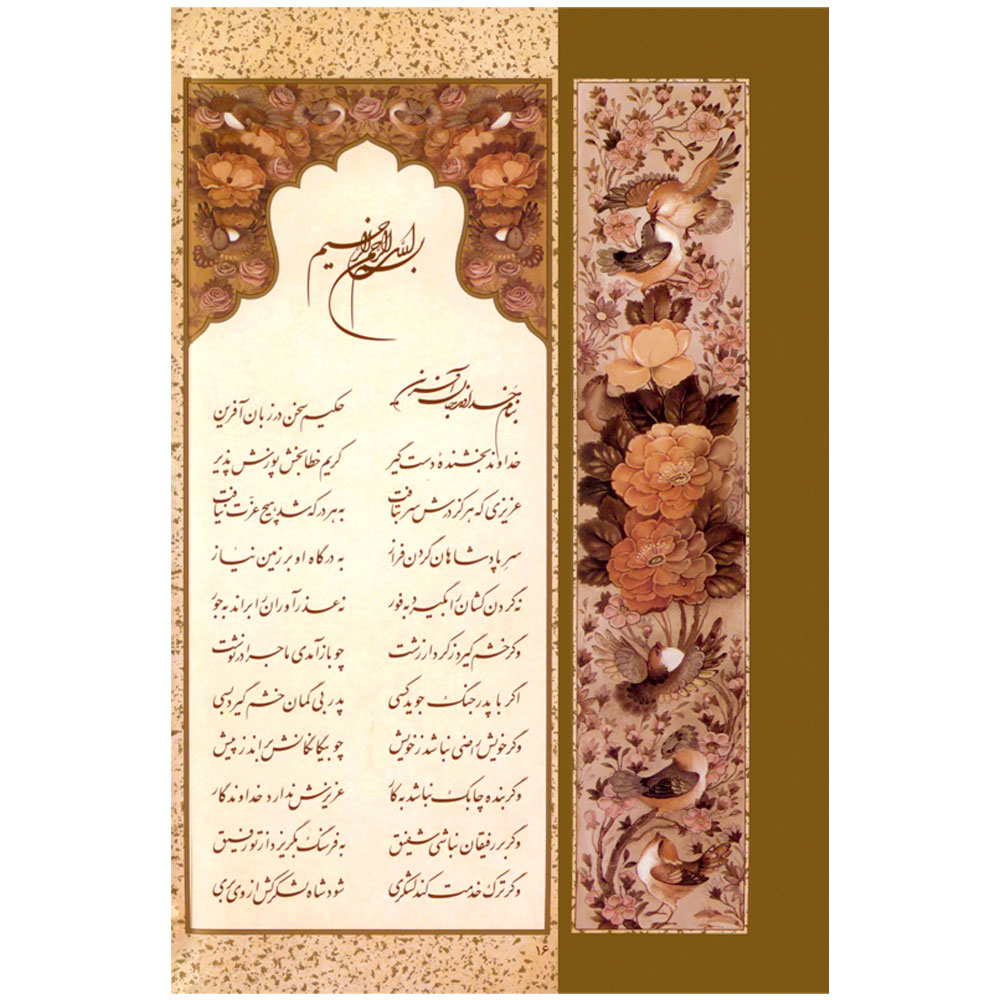 بسم الله الرحمن الرحیم
بنام خداوند جان آفرین حکیم سخن در زبان آفرین
خداوند بخشندهٔ دست گیر کریم خطابخش پوزش پذیر
عزیزی که هر کز درش سر بتافت به هر در که شد هیچ عزّت نیافت
سرِ پادشاهان گردن فراز به درگاه او بر زمین نیاز
نه گردن کشان را بگیرد به فور نه عذرآوران را براند به جور
وگر خشم گیرد ز کردار زشت چو بازآمدی ماجرا در نوشت
اگر با پدر جنگ جوید کسی پدر بی گمان خشم گیرد بسی
وگر خویش راضی نباشد ز خویش چو بیگانگانش براند ز پیش
وگر بنده چابک نباشد به کار عزیزش ندارد خداوندگار
وگر بر رفیقان نباشی شفیق به فرسنگ بگریزد از تو رفیق
وگر ترک خدمت کند لشکری شود شاه لشکرکش از وی بری
۱۶